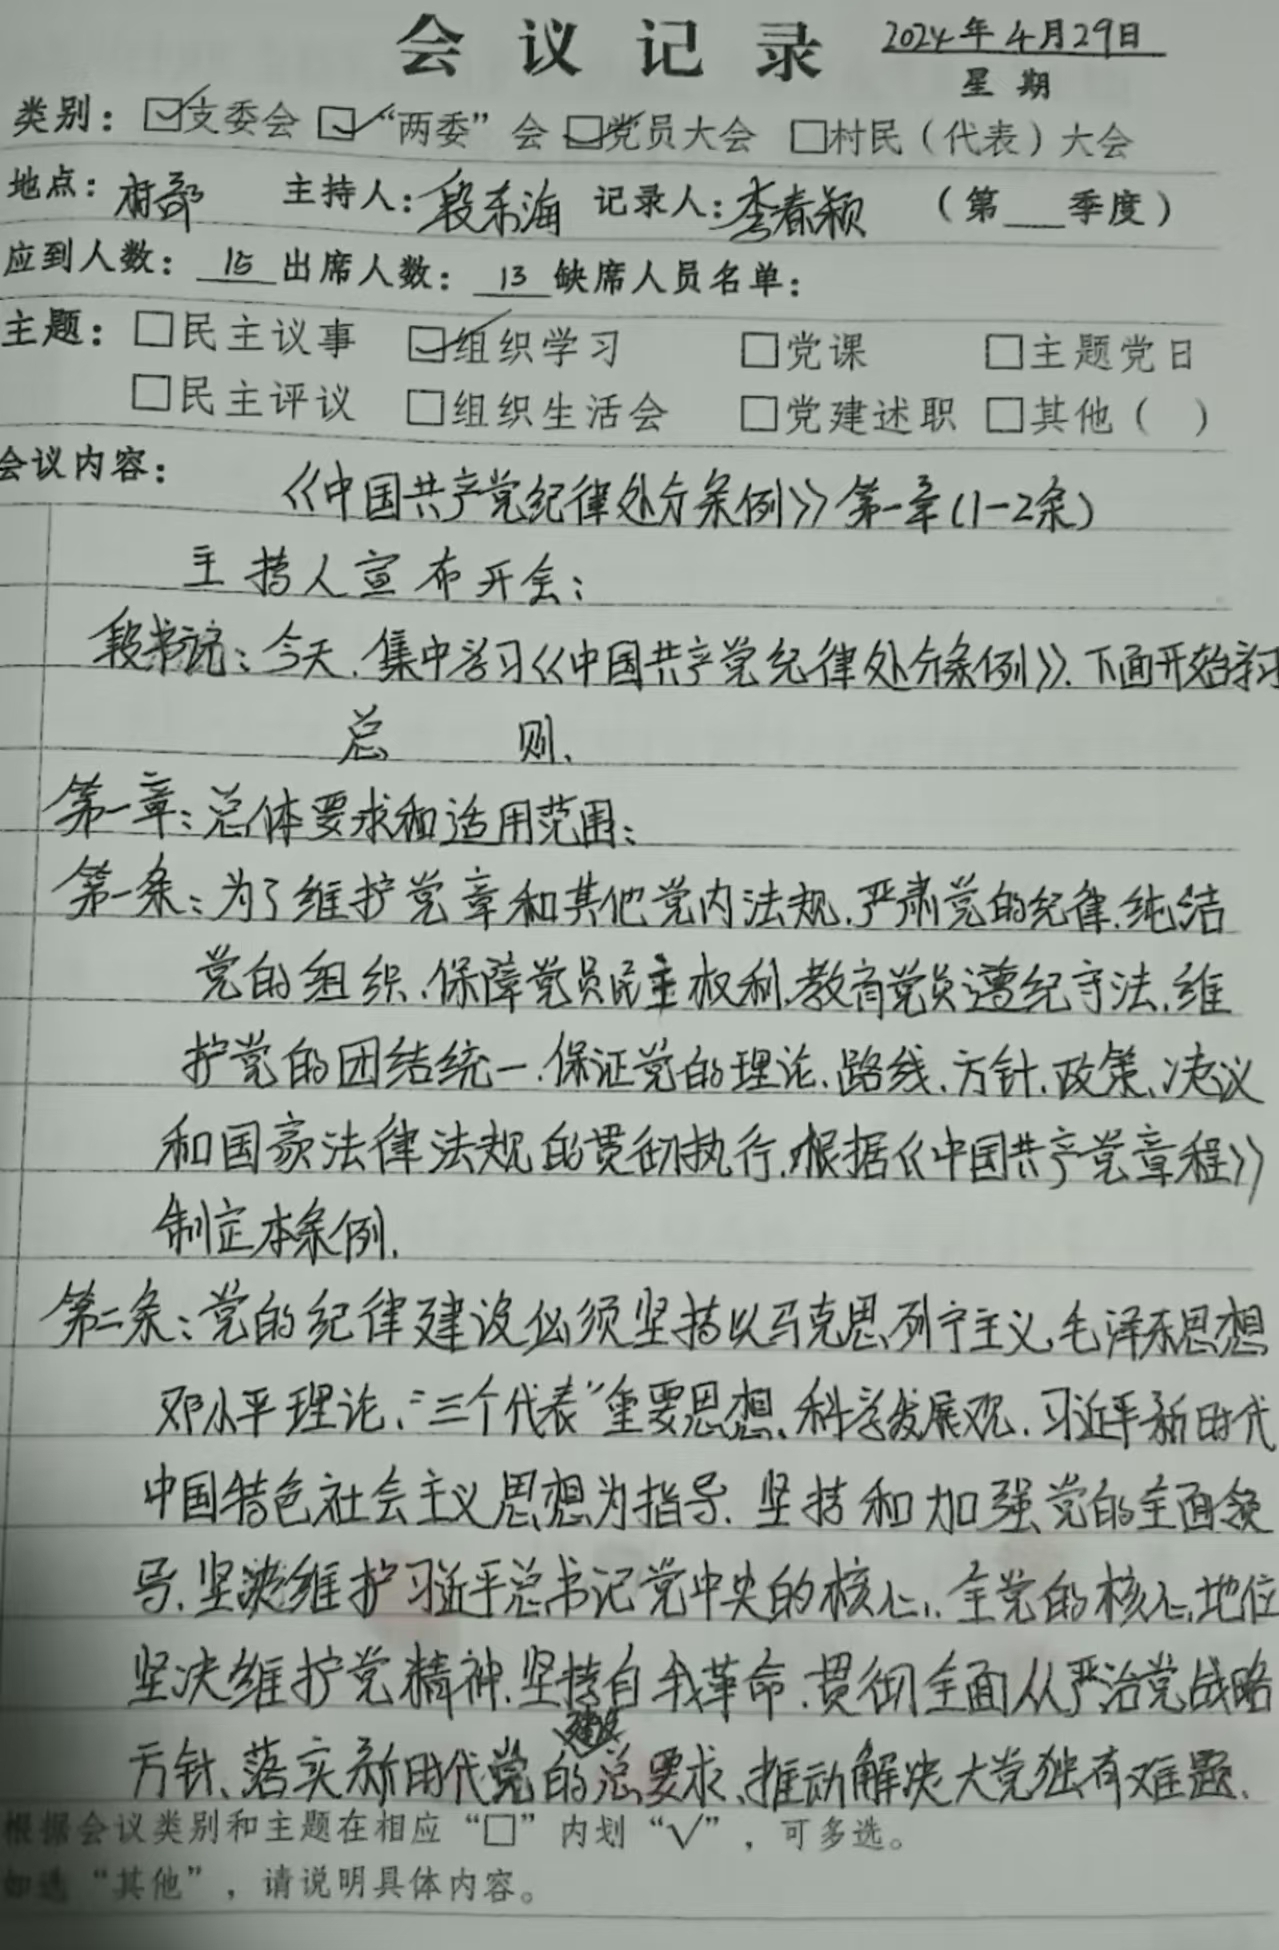 会议记录 2024年4月29日
星期
类别：☑支委会 ☑“两委”会 ☑党员大会 □村民（代表）大会
地点：村部 主持人：段东海 记录人：李春颖 （第___季度）
应到人数：15 出席人数：13 缺席人员名单：
主题：□民主议事 ☑组织学习 □党课 □主题党日
□民主评议 □组织生活会 □党建述职 □其他（ ）
会议内容：
《中国共产党纪律处分条例》第一章(1-2条)
主持人宣布开会：
段书说：今天.集中学习《中国共产党纪律处分条例》.下面开始学习
总 则.
第一章：总体要求和适用范围：
第一条：为了维护党章和其他党内法规.严肃党的纪律.纯洁
党的组织.保障党员民主权利.教育党员遵纪守法.维
护党的团结统一.保证党的理论.路线.方针.政策.决议
和国家法律法规的贯彻执行.根据《中国共产党章程》
制定本条例.
第二条：党的纪律建设必须坚持以马克思列宁主义.毛泽东思想
邓小平理论.“三个代表”重要思想.科学发展观.习近平新时代
中国特色社会主义思想为指导.坚持和加强党的全面领
导.坚决维护习近平总书记党中央的核心.全党的核心地位
坚决维护党精神.坚持自我革命.贯彻全面从严治党战略
方针.落实新时代党建设的总要求.推动解决大党独有难题.
根据会议类别和主题在相应“□”内划“√”，可多选。
如选“其他”，请说明具体内容。